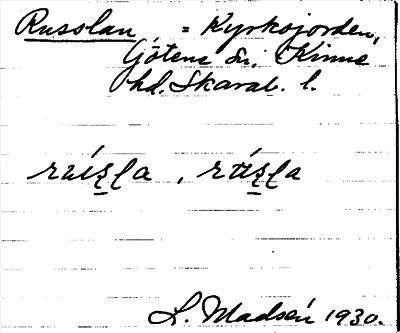 Russlan, = Kyrksjorden,
Götene sn. Kinne
hd. Skarab. l.
L. Madsén 1930.